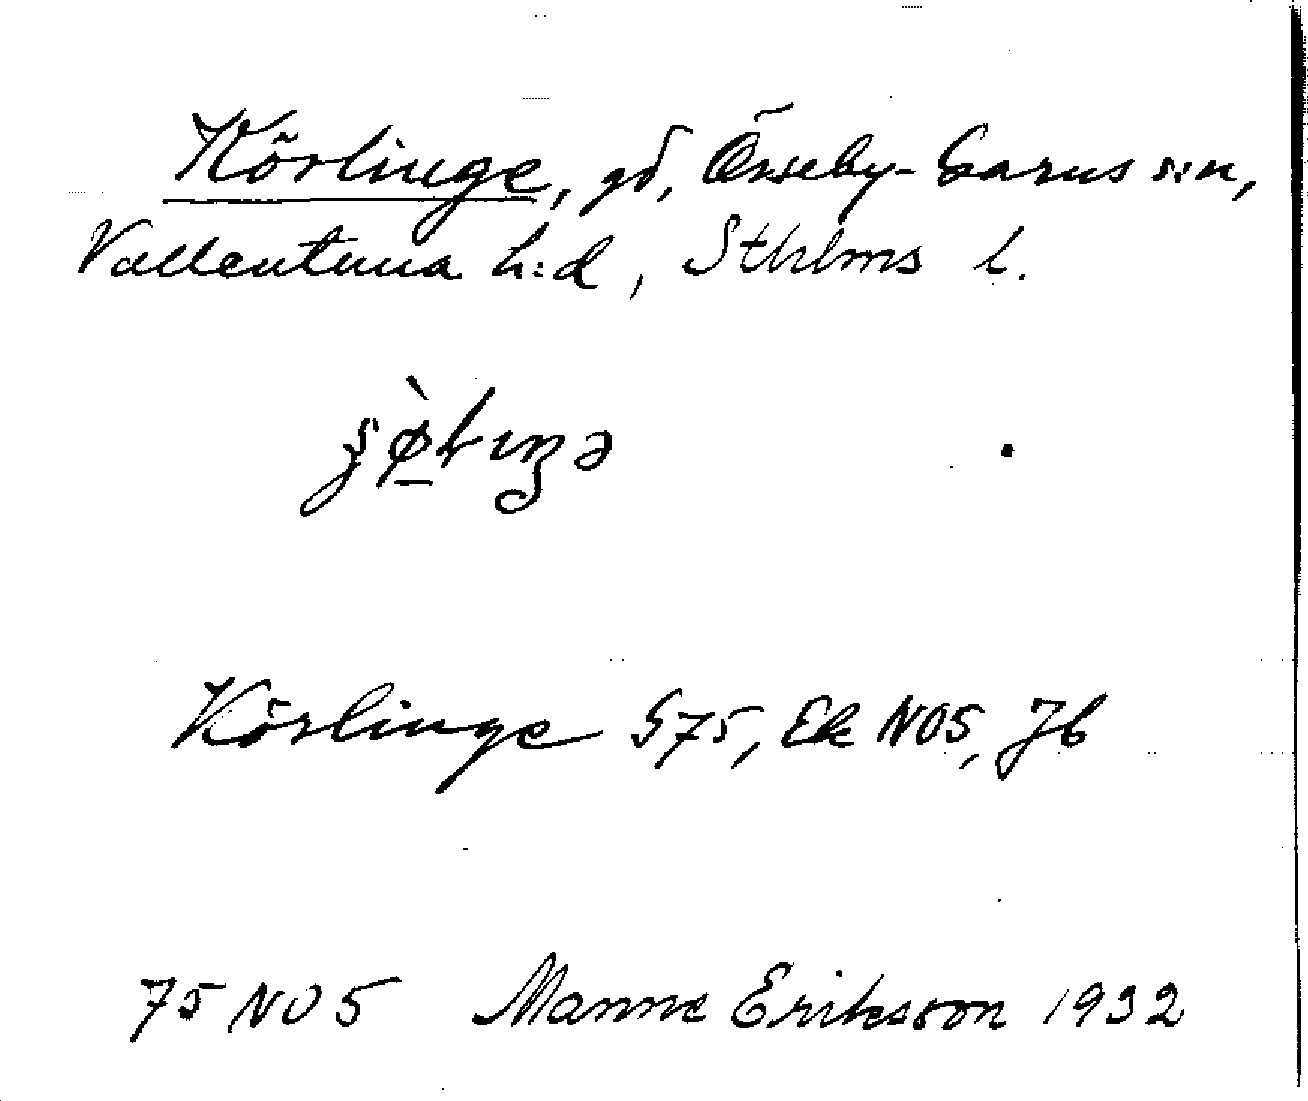 Körlinge, gd, Össeby-Garns s:n,
Vallentuna h:d, Sthlms l.
Körlinge G75, Ek NO5, Jb
75 NO 5 Manne Eriksson 1932